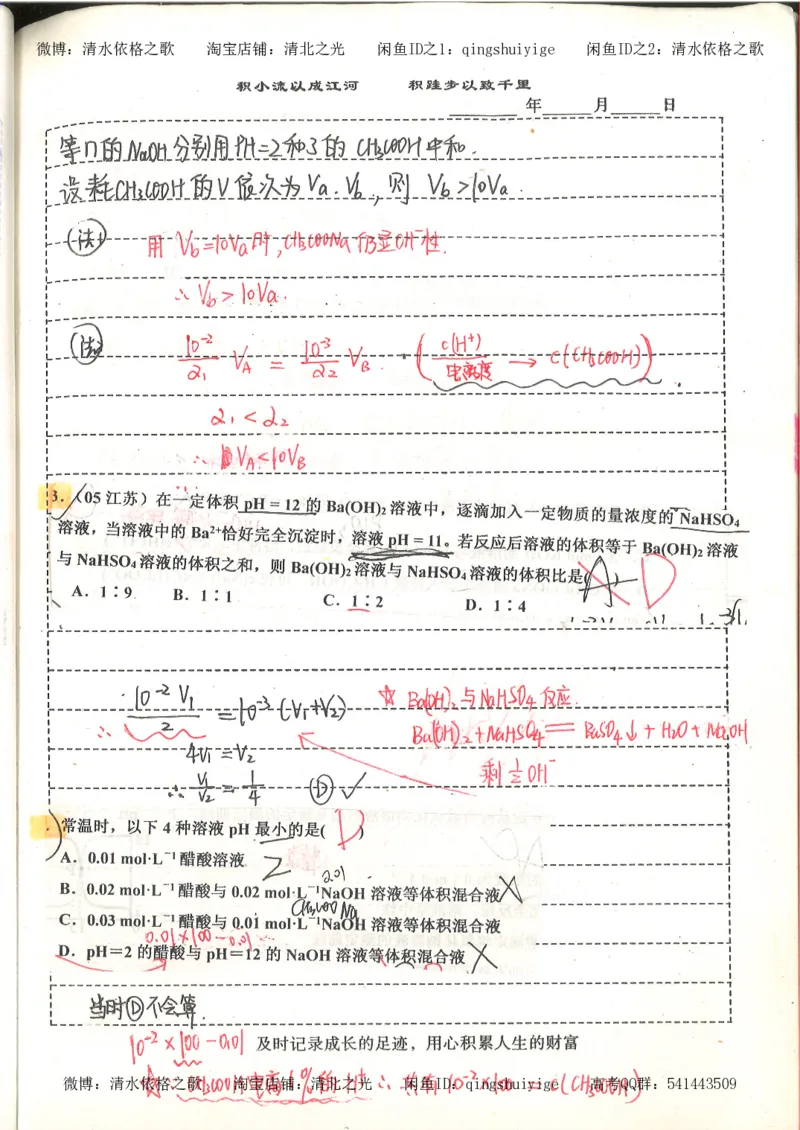 微博：清水依格之歌 淘宝店铺：清北之光 闲鱼ID之1：qingshuiyige 闲鱼ID之2：清水依格之歌
积小流以成江河 积跬步以致千里
年 月 日
等n的NaOH分别用PH=2和3的CH₃COOH中和.
设耗CH₃COOH的V依次为Va.Vb，则 Vb>10Va.
法1
用 Vb=10Va时，CH₃COONa仍显OH⁻性.
∴ Vb>10Va.
法2
10⁻²/α₁ VA = 10⁻³/α₂ VB. (c(H⁺)/电离度 → c(CH₃COOH)).
α₁<α₂
∴ VA<10VB
3．（05江苏）在一定体积 pH＝12 的 Ba(OH)₂ 溶液中，逐滴加入一定物质的量浓度的 NaHSO₄
溶液，当溶液中的 Ba²⁺恰好完全沉淀时，溶液 pH＝11。若反应后溶液的体积等于 Ba(OH)₂ 溶液
与 NaHSO₄ 溶液的体积之和，则 Ba(OH)₂ 溶液与 NaHSO₄ 溶液的体积比是( A D
A．1∶9 B．1∶1 C．1∶2 D．1∶4
∴ 10⁻²V₁/2 = 10⁻³(V₁+V₂) ☆ Ba(OH)₂与NaHSO₄反应.
Ba(OH)₂+NaHSO₄＝BaSO₄↓+H₂O+NaOH
4V₁=V₂
剩½OH⁻
∴ V₁/V₂=1/4 Ⓓ✓
常温时，以下 4 种溶液 pH 最小的是( D )
A．0.01 mol·L⁻¹醋酸溶液
0.01
B．0.02 mol·L⁻¹醋酸与 0.02 mol·L⁻¹NaOH 溶液等体积混合液
CH₃COONa
C．0.03 mol·L⁻¹醋酸与 0.01 mol·L⁻¹NaOH 溶液等体积混合液
0.01×100-0.01
D．pH＝2 的醋酸与 pH＝12 的 NaOH 溶液等体积混合液
当时Ⓓ不会算.
10⁻²×100-0.01 及时记录成长的足迹，用心积累人生的财富
微博：清水依格之歌 淘宝店铺：清北之光 闲鱼ID：qingshuiyige 高考QQ群：541443509